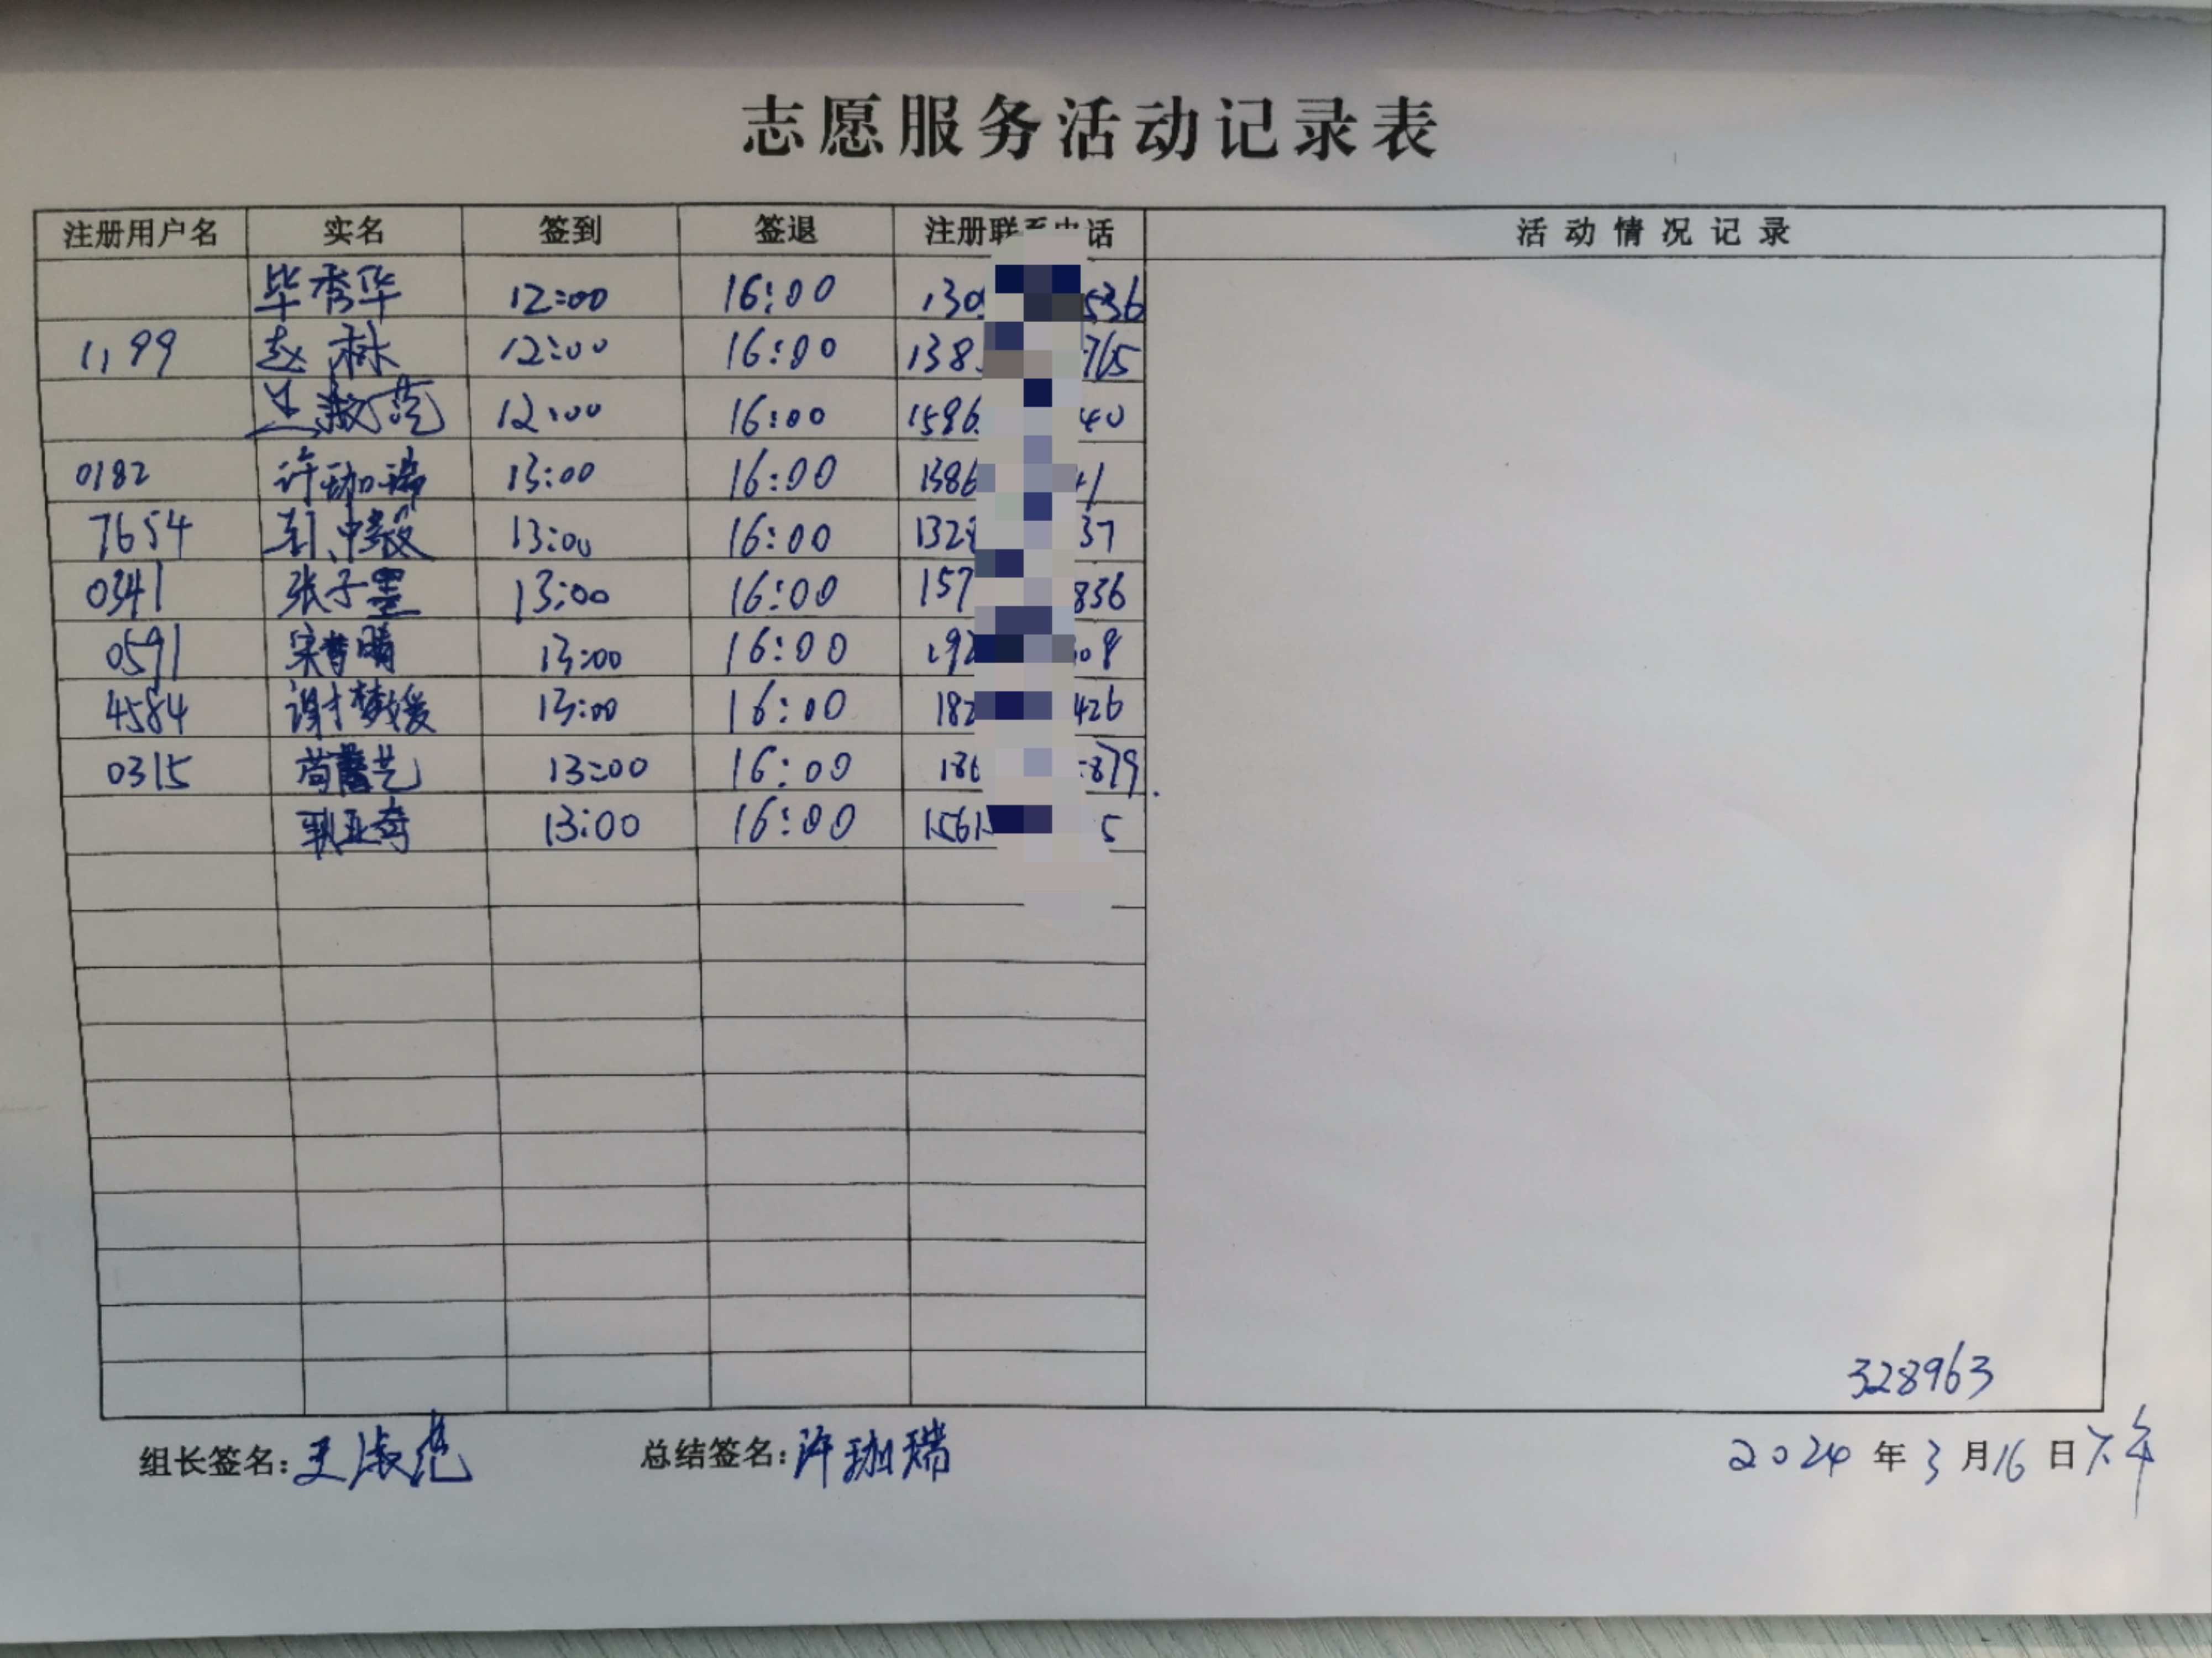 志愿服务活动记录表
注册用户名 实名 签到 签退 注册联系电话 活动情况记录
毕秀华 12:00 16:00 130 536
1199 赵林 12:00 16:00 138 765
12:00 16:00 1586 40
0182 许珈瑞 13:00 16:00 1386 41
7654 13:00 16:00 1328 37
0341 张子墨 13:00 16:00 157 836
0591 宋梦晴 13:00 16:00 192 08
4584 谢梦媛 13:00 16:00 182 426
0315 13:00 16:00 186 879
耿亚奇 13:00 16:00 1561 5
328963
组长签名: 王淑范 总结签名: 许珈瑞 2024年3月16日下午